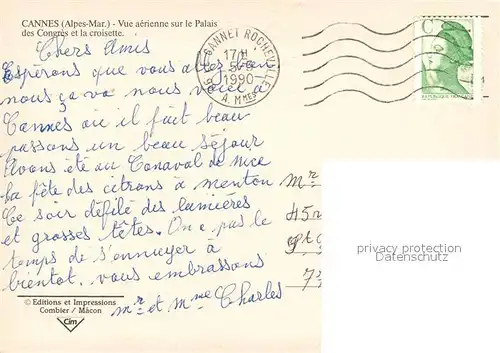 CANNES (Alpes-Mar.) - Vue aérienne sur le Palais
des Congrès et la croisette.
Chers Amis
Espérons que vous allez bien
nous ça va nous voici à
Cannes où il fait beau
passons un beau séjour
Avons été au Canaval de nice
La fête des citrons à menton
Ce soir défilé des lumières
et grosses têtes. On a pas le
temps de s'ennuyer à
bientot. vous embrassons
mr et mme Charles
© Editions et Impressions
Combier / Mâcon
Cim
CANNET ROCHEVILLE
17H
1990
06 A. MMES
mr
45
privacy protection
Datenschutz